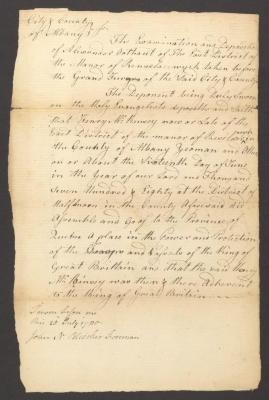 City & County
of Albany Ss
The Examination and Deposition
of Alexander Oothout of The East District of
the Manor of Renselaerwyck taken before
the Grand Jurors of the Said City & County
The Deponent being duly Sworn
on the Holy Evangelists deposeth and Saith
that Henry McKinney now or late of the
East District of the manor of
the County of Albany Yeoman and
on or About the Sixteenth Day of June
in the Year of our Lord one Thousand
Seven Hundred & Eighty at the District of
Halfmoon in the County Aforesaid did
Assemble and Go to the Province of
Quebec A place in the Power and Protection
of the and of the King of
Great Brittain and that the said Henry
McKinney was then & there Adherent
to the King of Great Brittain
Sworn before me
this July 1780
John N Bleecker Foreman